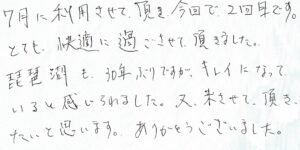 7月に利用させて頂き今回で、2回目です。
とても、快適に過ごさせて頂きました。
琵琶湖も、30年ぶりですが、キレイになって
いると感じられました。又、来させて、頂き、
たいと思います。ありがとうございました。